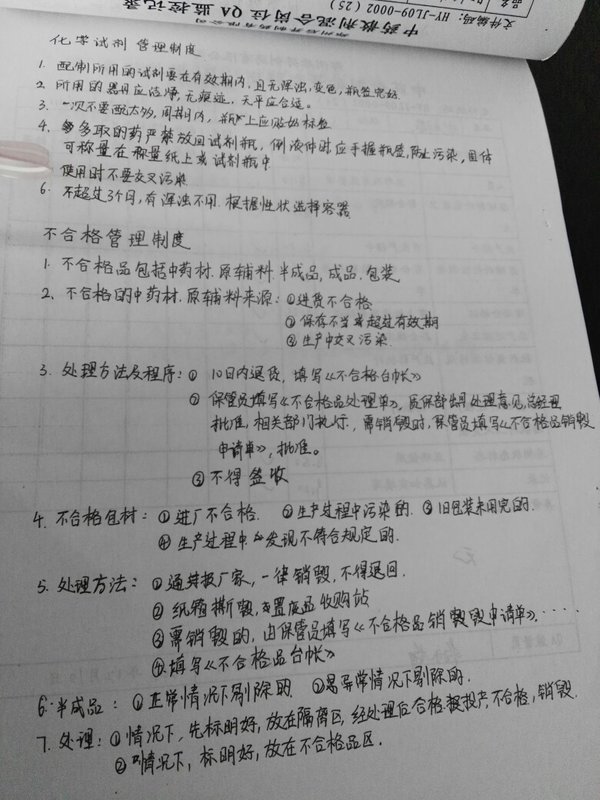 中药散剂混合岗位 QA 监控记录
文件编码：HY-JL09-0002（25）
化学试剂 管理制度
1. 配制所用的试剂要在有效期内，且无浑浊，变色，瓶签完好.
2. 所用的器具应洁净，无痕迹，天平应合适。
3. 一次不要配太多，周期内，瓶上应贴好标签
4. 多取的药严禁放回试剂瓶，倒液体时应手握瓶签，防止污染，固体
可称量在称量纸上或试剂瓶中
使用时不要交叉污染
6. 不超过3个月，有浑浊不用. 根据性状选择容器
不合格管理制度
1. 不合格品包括中药材.原辅料.半成品，成品.包装
2. 不合格的中药材.原辅料来源：①进货不合格
②保存不当或超过有效期
③生产中交叉污染
3. 处理方法及程序：① 10日内退货，填写《不合格台帐》
② 保管员填写《不合格品处理单》，质保部出具处理意见，总经理
批准，相关部门执行，需销毁时，保管员填写《不合格品销毁
申请单》，批准。
③ 不得签收
4. 不合格包材：①进厂不合格. ②生产过程中污染的. ③旧包装未用完的.
④生产过程中发现不符合规定的.
5. 处理方法：①通知厂家，一律销毁，不得退回.
② 纸箱撕毁，置废品收购站
③ 需销毁的，由保管员填写《不合格品销毁申请单》.……
④填写《不合格品台帐》
6. 半成品：①正常情况下剔除的 ②异常情况下剔除的.
7. 处理：①情况下，先标明好，放在隔离区，经处理后合格投产，不合格，销毁.
②情况下，标明好，放在不合格品区.